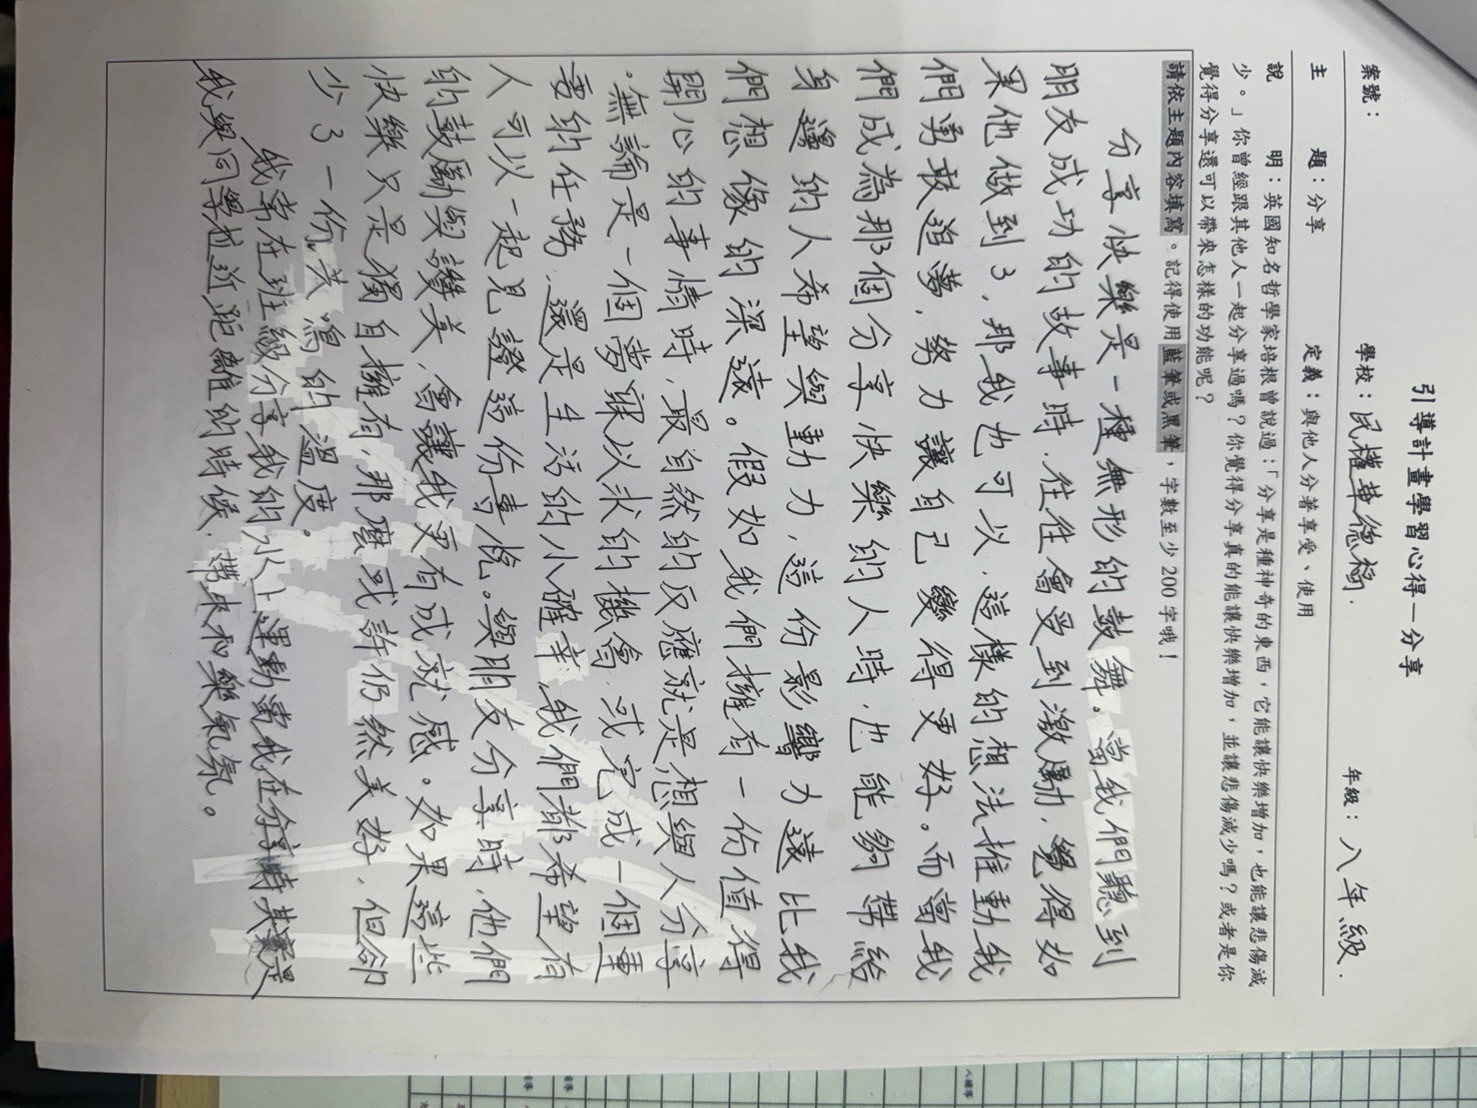 引導計畫學習心得—分享
案號： 學校：民權華德福. 年級：八年級.
主題：分享 定義：與他人分著享受、使用
說明：英國知名哲學家培根曾說過：「分享是種神奇的東西，它能讓快樂增加，也能讓悲傷減
少。」你曾經跟其他人一起分享過嗎？你覺得分享真的能讓快樂增加，並讓悲傷減少嗎？或者是你
覺得分享還可以帶來怎樣的功能呢？
請依主題內容填寫。記得使用藍筆或黑筆，字數至少200字哦！
分享快樂是一種無形的鼓舞。當我們聽到
朋友成功的故事時，往往會受到激勵，覺得如
果他做到了，那我也可以，這樣的想法推動我
們勇敢追夢，努力讓自己變得更好。而當我
們成為那個分享快樂的人時，也能夠帶給
身邊的人希望與動力，這份影響力遠比我
們想像的深遠。假如我們擁有一份值得
開心的事情時，最自然的反應就是想與人分享
。無論是一個夢寐以求的機會，或完成一個重
要的任務，還是生活的小確幸，我們都希望有
人可以一起見證這份喜悅。與朋友分享時，他們
的鼓勵與讚美，會讓我更有成就感。如果這些
快樂只是獨自擁有，那麼或許仍然美好，但卻
少了一份共鳴的溫度。
我常在班級分享我的水上運動，當我在分享時其實是
我與同學拉近距離的時候，帶來和樂氣氛。
八年導